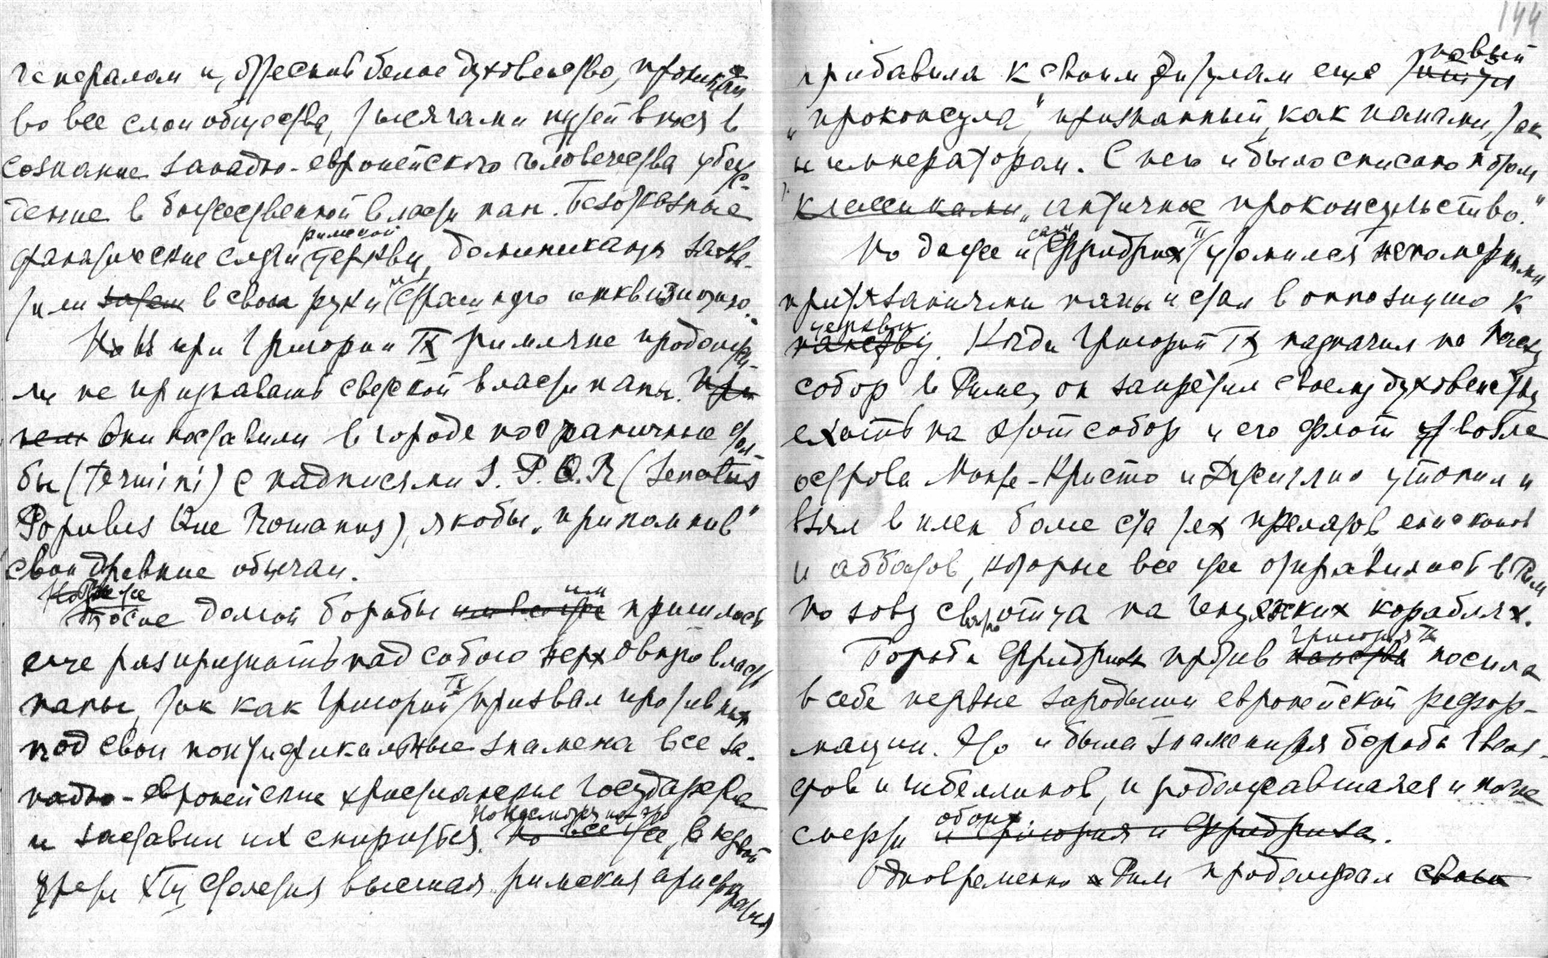 генералом и, оттеснив белое духовенство, проникая
во все слои общества, тысячами путей внося в
сознание западно-европейского человечества убеж-
дение в божественной власти пап. Безотказные
фанатические слуги римской церкви, доминиканцы захва-
тили затем в свои руки и страшную инквизицию.
Но и при Григории IX римляне продолжа-
ли не признавать светской власти папы. При
чем они поставили в городе пограничные стол-
бы (termini) с надписями S. P. Q. R (Senatus
Populus Que Romanus), якобы "припомнив"
свои древние обычаи.
Но тоже
После долгой борьбы им все же пришлось
еще раз признать над собою верховную власть
папы, так как Григорий IX призвал против них
под свои понтификальные знамена все за-
падно-европейские христианские государства
и заставил их смириться. Но все же, в первой
трети XIII столетия высшая римская аристократия
144
прибавила к своим титулам еще новый титул
"проконсула", признанный как папами, так
и императором. С него и было списано потом
классиками "античное проконсульство."
Но даже и сам Фридрих II утомился непомерными
притязаниями папы и стал в оппозицию к
церкви папству. Когда Григорий IX назначил на Пасху
собор в Риме, он запретил своему духовенству
ехать на этот собор и его флот возле
острова Монте-Кристо и Джиглио утопил и
взял в плен более ста тех прелатов, епископов
и аббатов, которые все же отправились в Рим
по зову святого отца на генуэзских кораблях.
Борьба Фридриха против Григория IX папства носила
в себе первые зародыши европейской рефор-
мации. Это и была знаменитая борьба гвель-
фов и гибеллинов, продолжавшаяся и после
смерти обоих и Григория и Фридриха.
Одновременно Рим продолжал свои